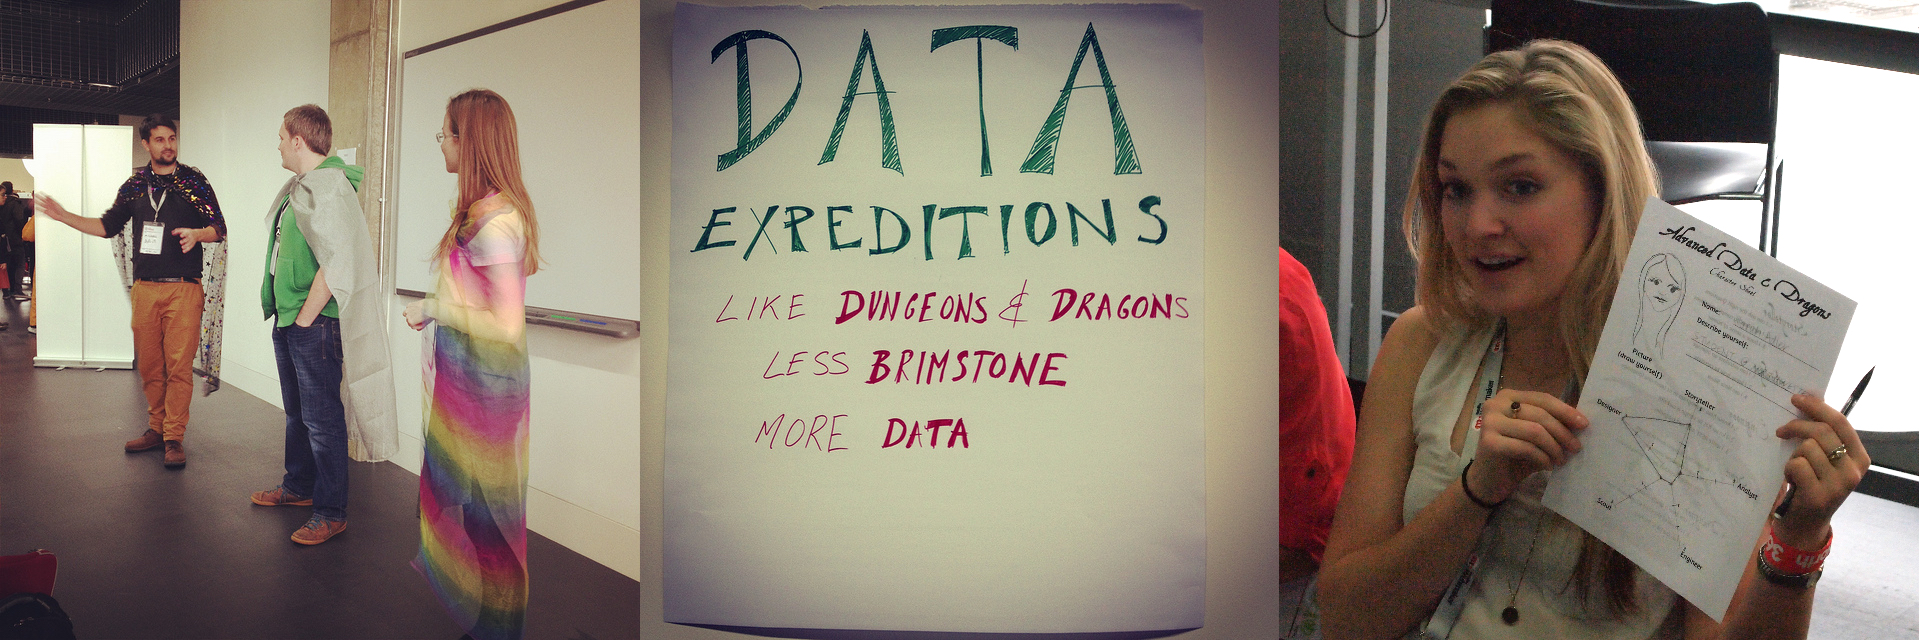 DATA
EXPEDITIONS
LIKE DUNGEONS & DRAGONS
LESS BRIMSTONE
MORE DATA
Advanced Data & Dragons
Character Sheet
Name:
Describe yourself:
Picture
(draw yourself)
Storyteller
Designer
Analyst
Scout
Engineer